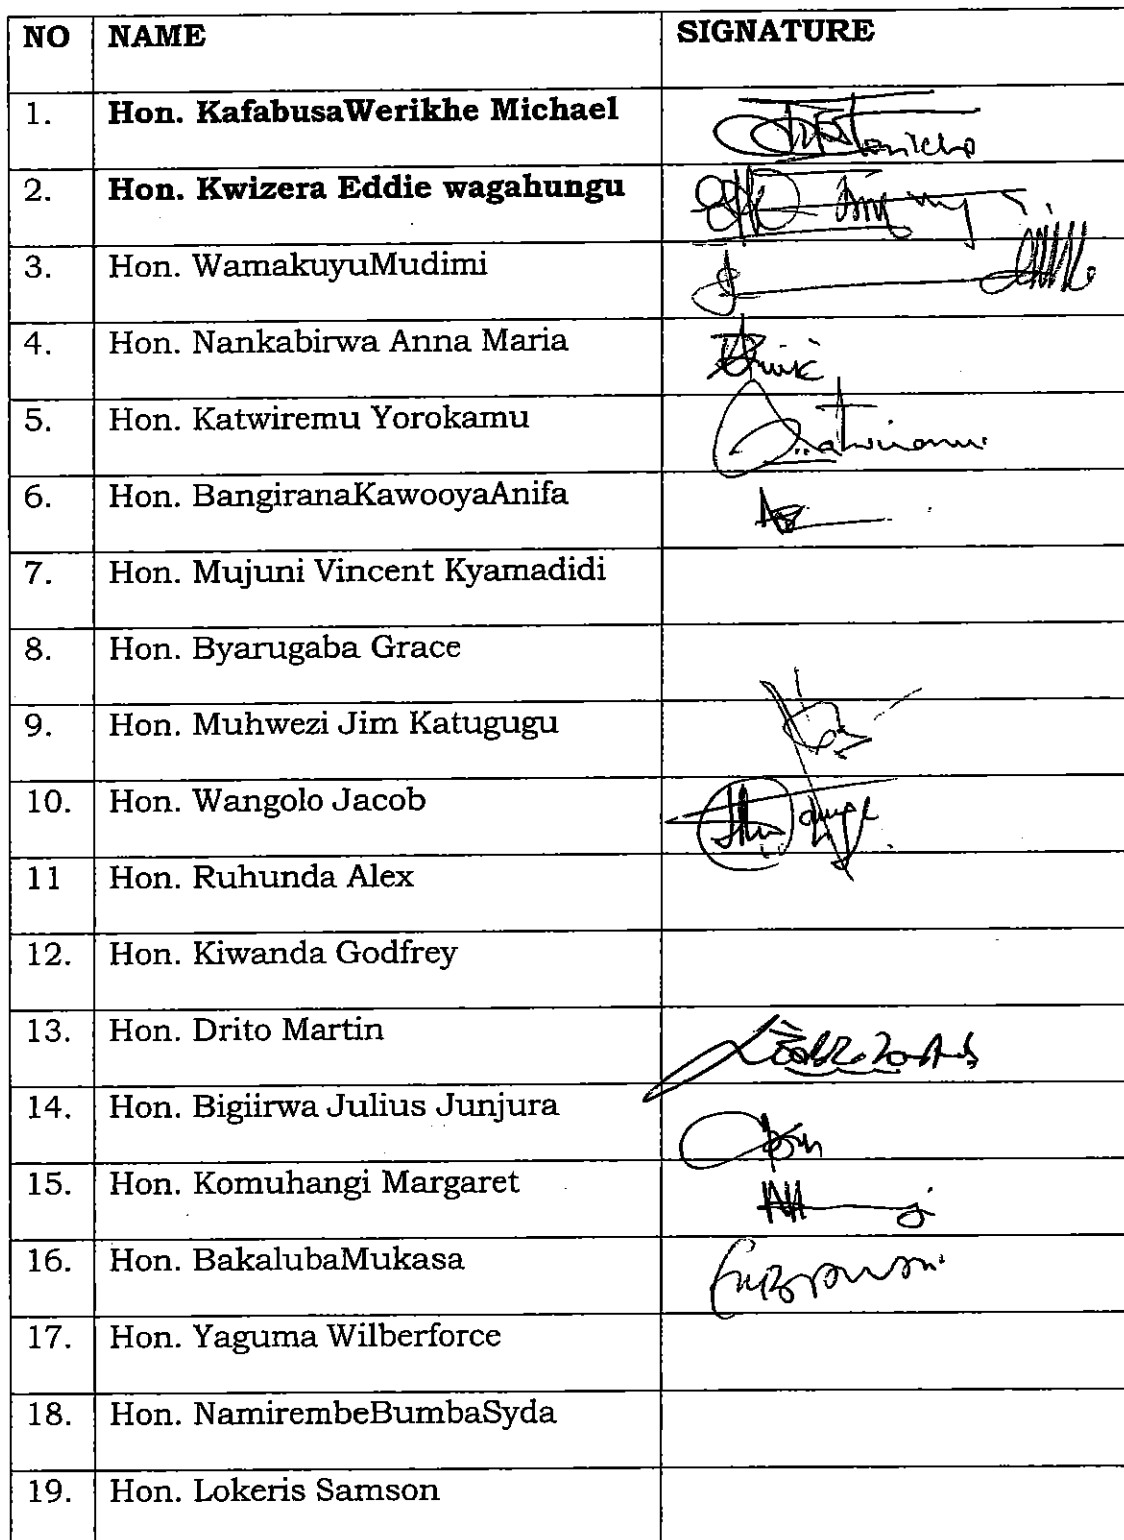 NO NAME SIGNATURE
1. Hon. KafabusaWerikhe Michael
2. Hon. Kwizera Eddie wagahungu
3. Hon. WamakuyuMudimi
4. Hon. Nankabirwa Anna Maria
5. Hon. Katwiremu Yorokamu
6. Hon. BangiranaKawooyaAnifa
7. Hon. Mujuni Vincent Kyamadidi
8. Hon. Byarugaba Grace
9. Hon. Muhwezi Jim Katugugu
10. Hon. Wangolo Jacob
11 Hon. Ruhunda Alex
12. Hon. Kiwanda Godfrey
13. Hon. Drito Martin
14. Hon. Bigiirwa Julius Junjura
15. Hon. Komuhangi Margaret
16. Hon. BakalubaMukasa
17. Hon. Yaguma Wilberforce
18. Hon. NamirembeBumbaSyda
19. Hon. Lokeris Samson